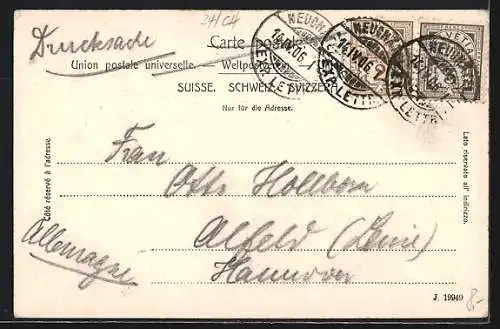 Drucksache
24/C4
Carte postale.
Union postale universelle. — Weltpostverein.
SUISSE. SCHWEIZ. SVIZZERA.
Nur für die Adresse.
NEUCH
14.IV.06.
EXP. LETTR.
NEUCH
14.IV.06.
EXP. LETTR.
NEUCH
EXP. LETTR.
Côté réservé à l'adresse.
Lato riservato all' indirizzo.
Frau
Otto Hollborn
Alfeld (Leine)
Hannover
Allemagne
J. 19949
8,-